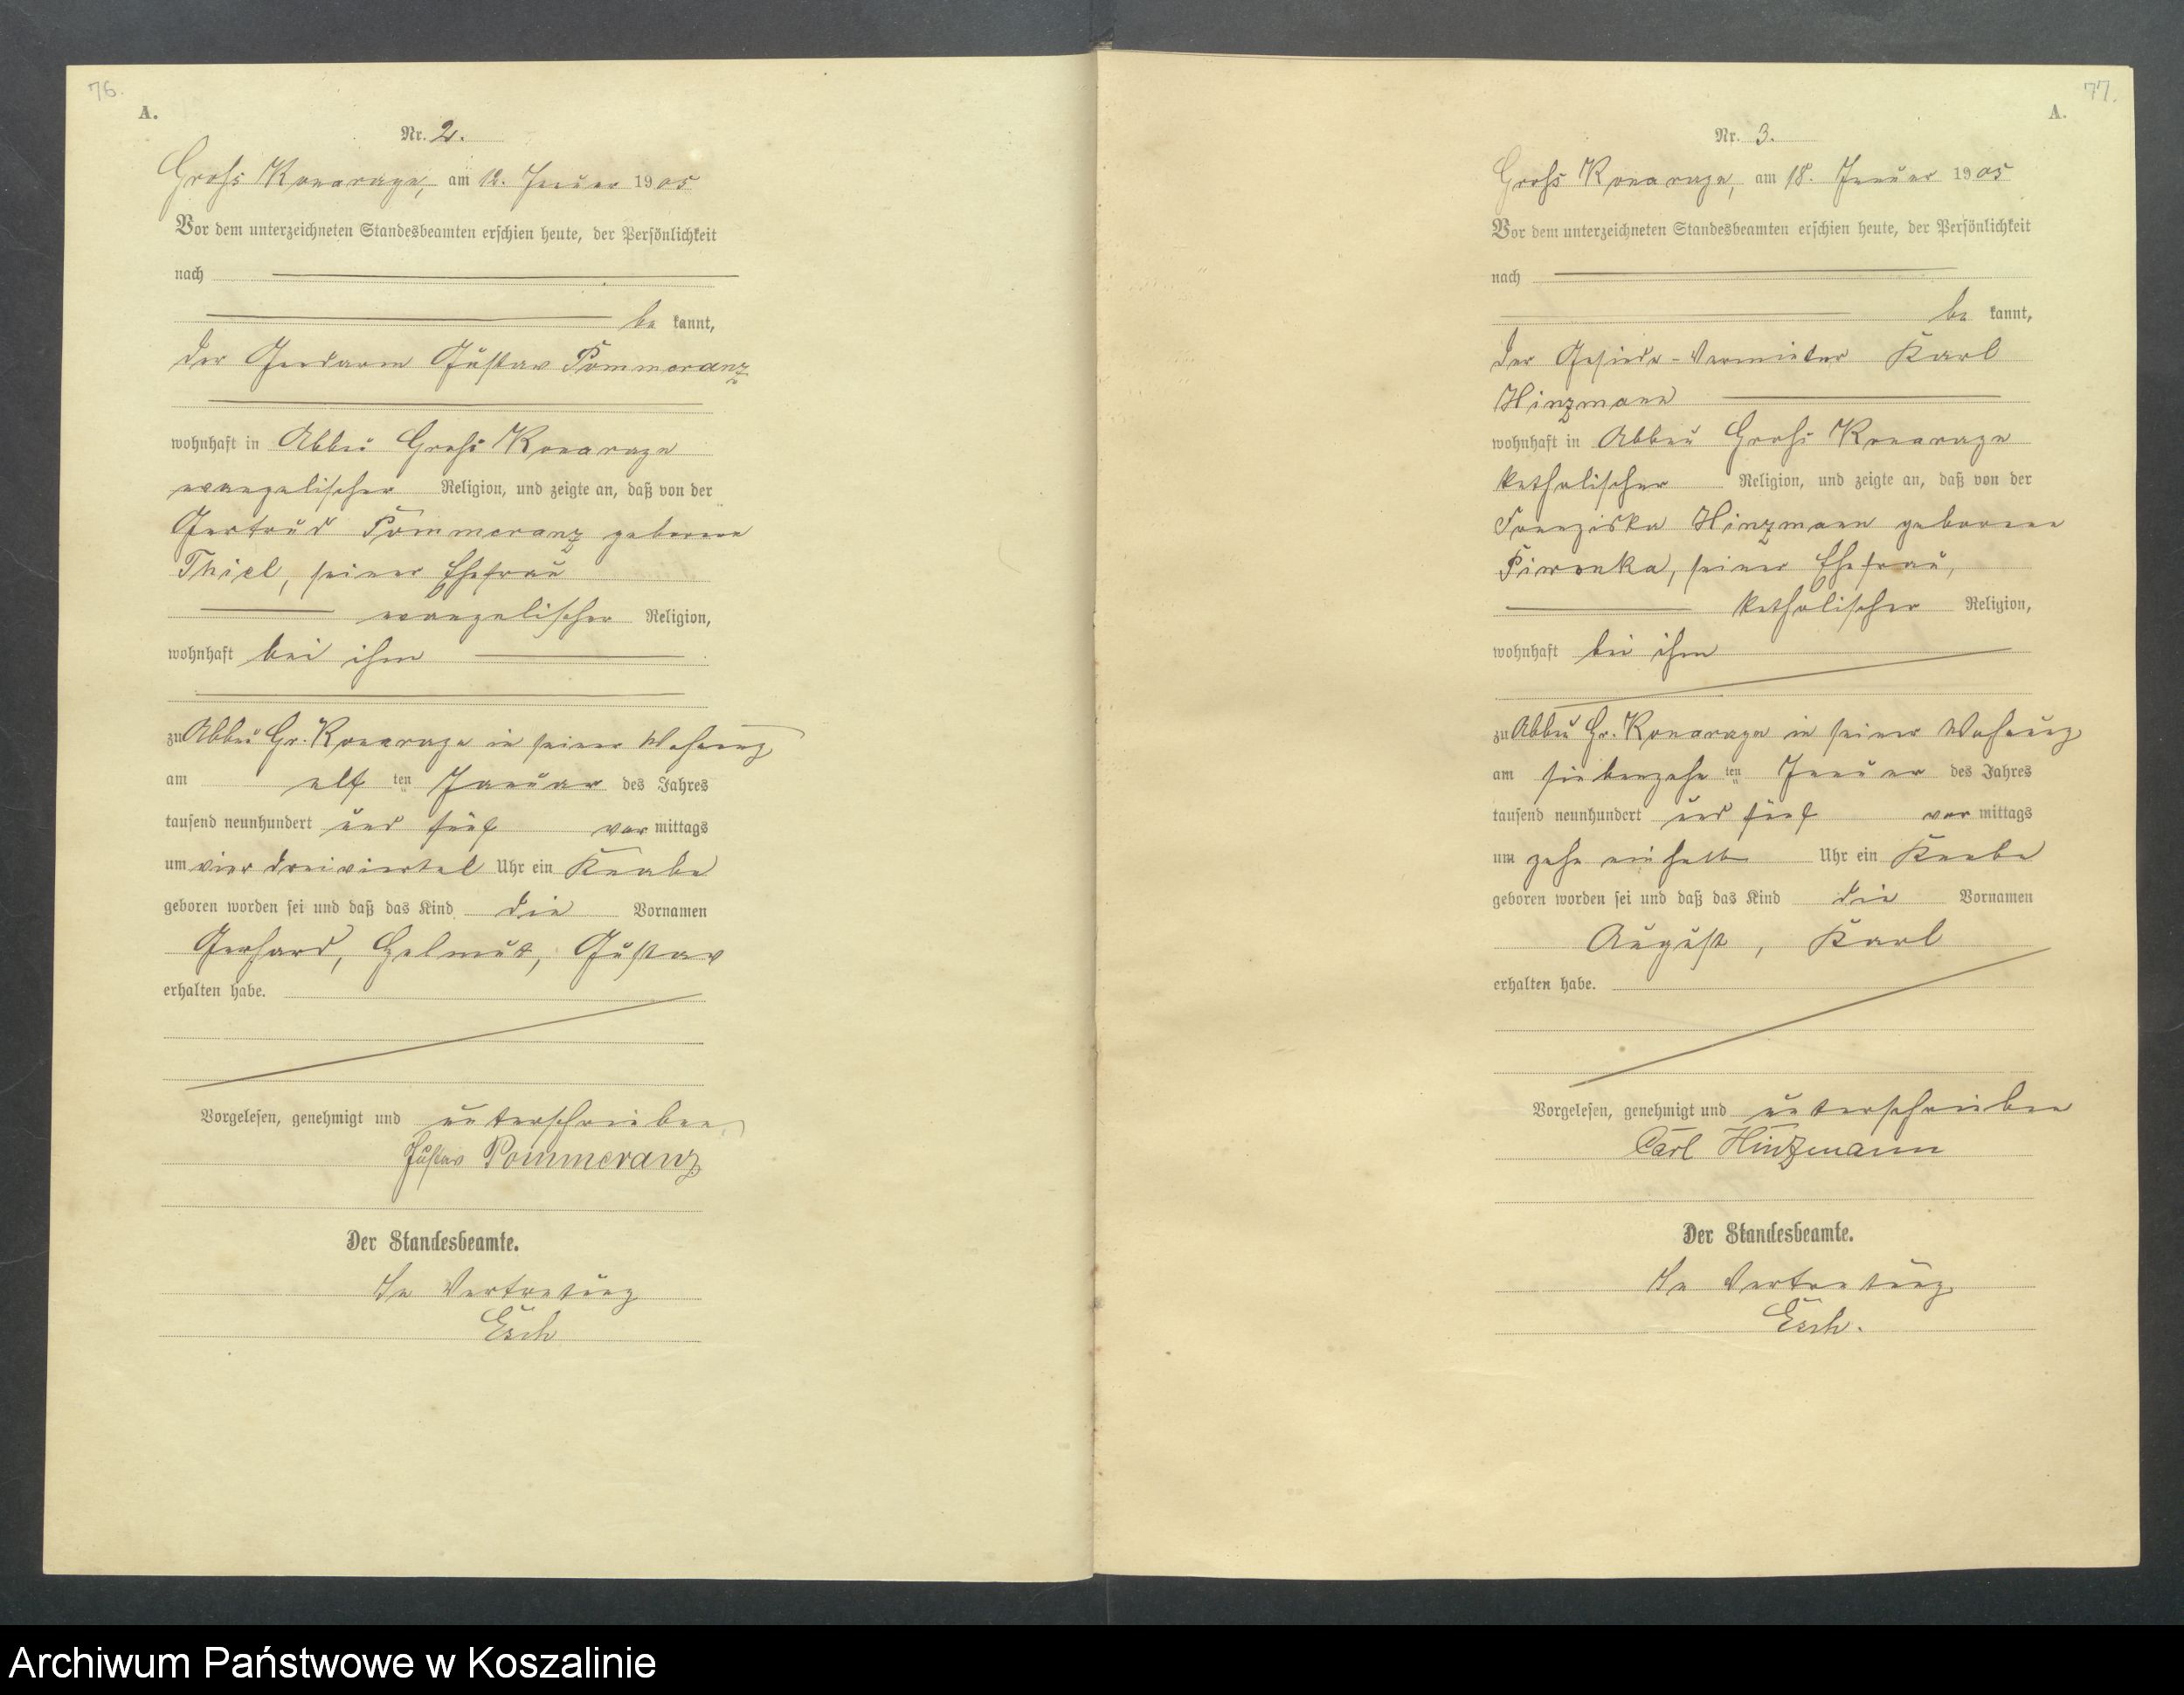 76.
A.
Nr. 2.
Gross Konarczyn, am 12. Januar 1905
Vor dem unterzeichneten Standesbeamten erschien heute, der Persönlichkeit
nach
be kannt,
der Gendarm Gustav Pommeranz
wohnhaft in Abbau Gross Konarczyn
evangelischer Religion, und zeigte an, daß von der
Gertrud Pommeranz geborene
Thiel, seiner Ehefrau
evangelischer Religion,
wohnhaft bei ihm
zu Abbau Gr. Konarczyn in seiner Wohnung
am elf ten Januar des Jahres
tausend neunhundert und fünf vor mittags
um vier dreiviertel Uhr ein Knabe
geboren worden sei und daß das Kind die Vornamen
Gerhard, Helmut, Gustav
erhalten habe.
Vorgelesen, genehmigt und unterschrieben
Gustav Pommeranz
Der Standesbeamte.
In Vertretung
Esch
77.
A.
Nr. 3.
Gross Konarczyn, am 18. Januar 1905
Vor dem unterzeichneten Standesbeamten erschien heute, der Persönlichkeit
nach
be kannt,
der Gesinde-Vermieter Karl
Hinzmann
wohnhaft in Abbau Gross Konarczyn
katholischer Religion, und zeigte an, daß von der
Franziska Hinzmann geborene
Piwonka, seiner Ehefrau,
katholischer Religion,
wohnhaft bei ihm
zu Abbau Gr. Konarczyn in seiner Wohnung
am siebenzehn ten Januar des Jahres
tausend neunhundert und fünf vor mittags
um zehn einhalb Uhr ein Knabe
geboren worden sei und daß das Kind die Vornamen
August, Karl
erhalten habe.
Vorgelesen, genehmigt und unterschrieben
Carl Hintzmann
Der Standesbeamte.
In Vertretung
Esch.
Archiwum Państwowe w Koszalinie